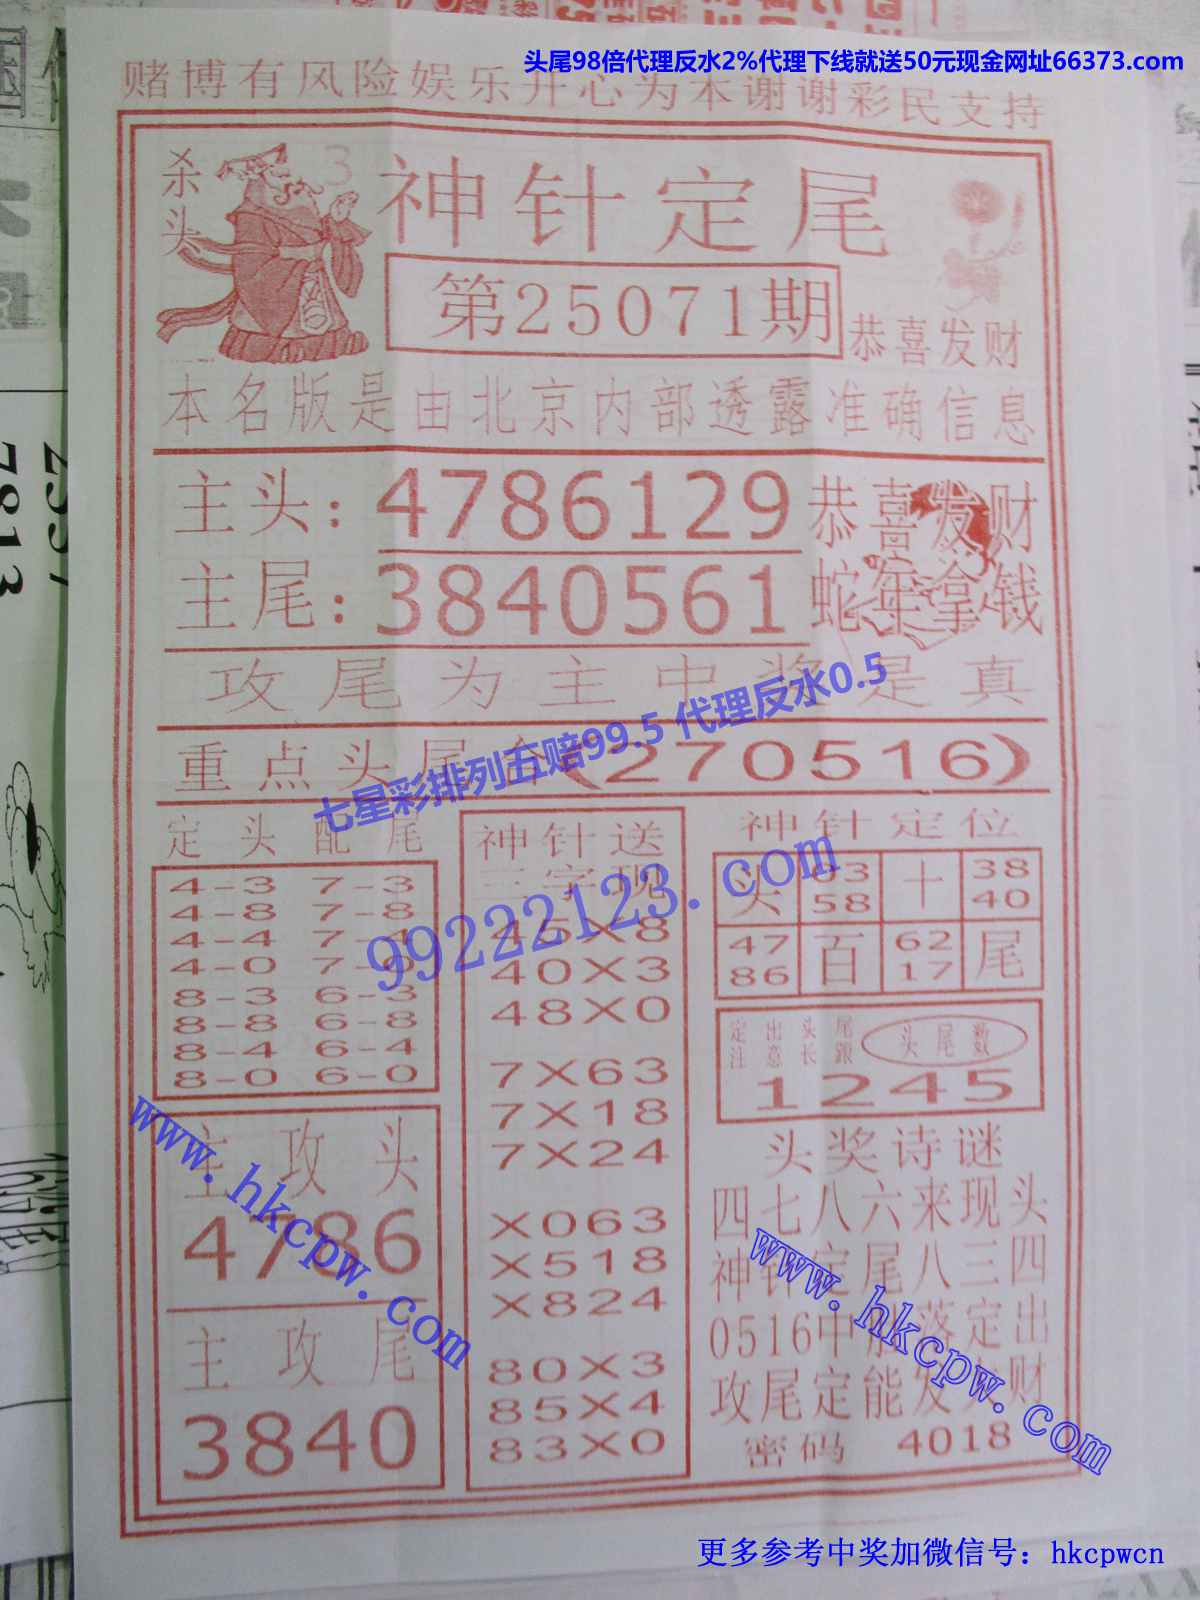 头尾98倍代理反水2%代理下线就送50元现金网址66373.com
赌博有风险娱乐开心为本谢谢彩民支持
杀头
3
神针定尾
第25071期
恭喜发财
本名版是由北京内部透露准确信息
主头：4786129
恭喜发财
主尾：3840561
蛇年拿钱
攻尾为主中奖是真
重点头尾合(270516)
七星彩排列五赔99.5 代理反水0.5
99222123.com
定头配尾
4-3 7-3
4-8 7-8
4-4 7-4
4-0 7-0
8-3 6-3
8-8 6-8
8-4 6-4
8-0 6-0
主攻头
4786
主攻尾
3840
神针送
三字现
45X8
40X3
48X0
7X63
7X18
7X24
X063
X518
X824
80X3
85X4
83X0
神针定位
头 03 十 38
58 40
47 百 62 尾
86 17
定出头尾
注意长跟
头尾数
1245
头奖诗谜
四七八六来现头
神针定尾八三四
0516中 落定出
攻尾定能发 财
密码 4018
www.hkcpw.com
www.hkcpw.com
更多参考中奖加微信号：hkcpwcn